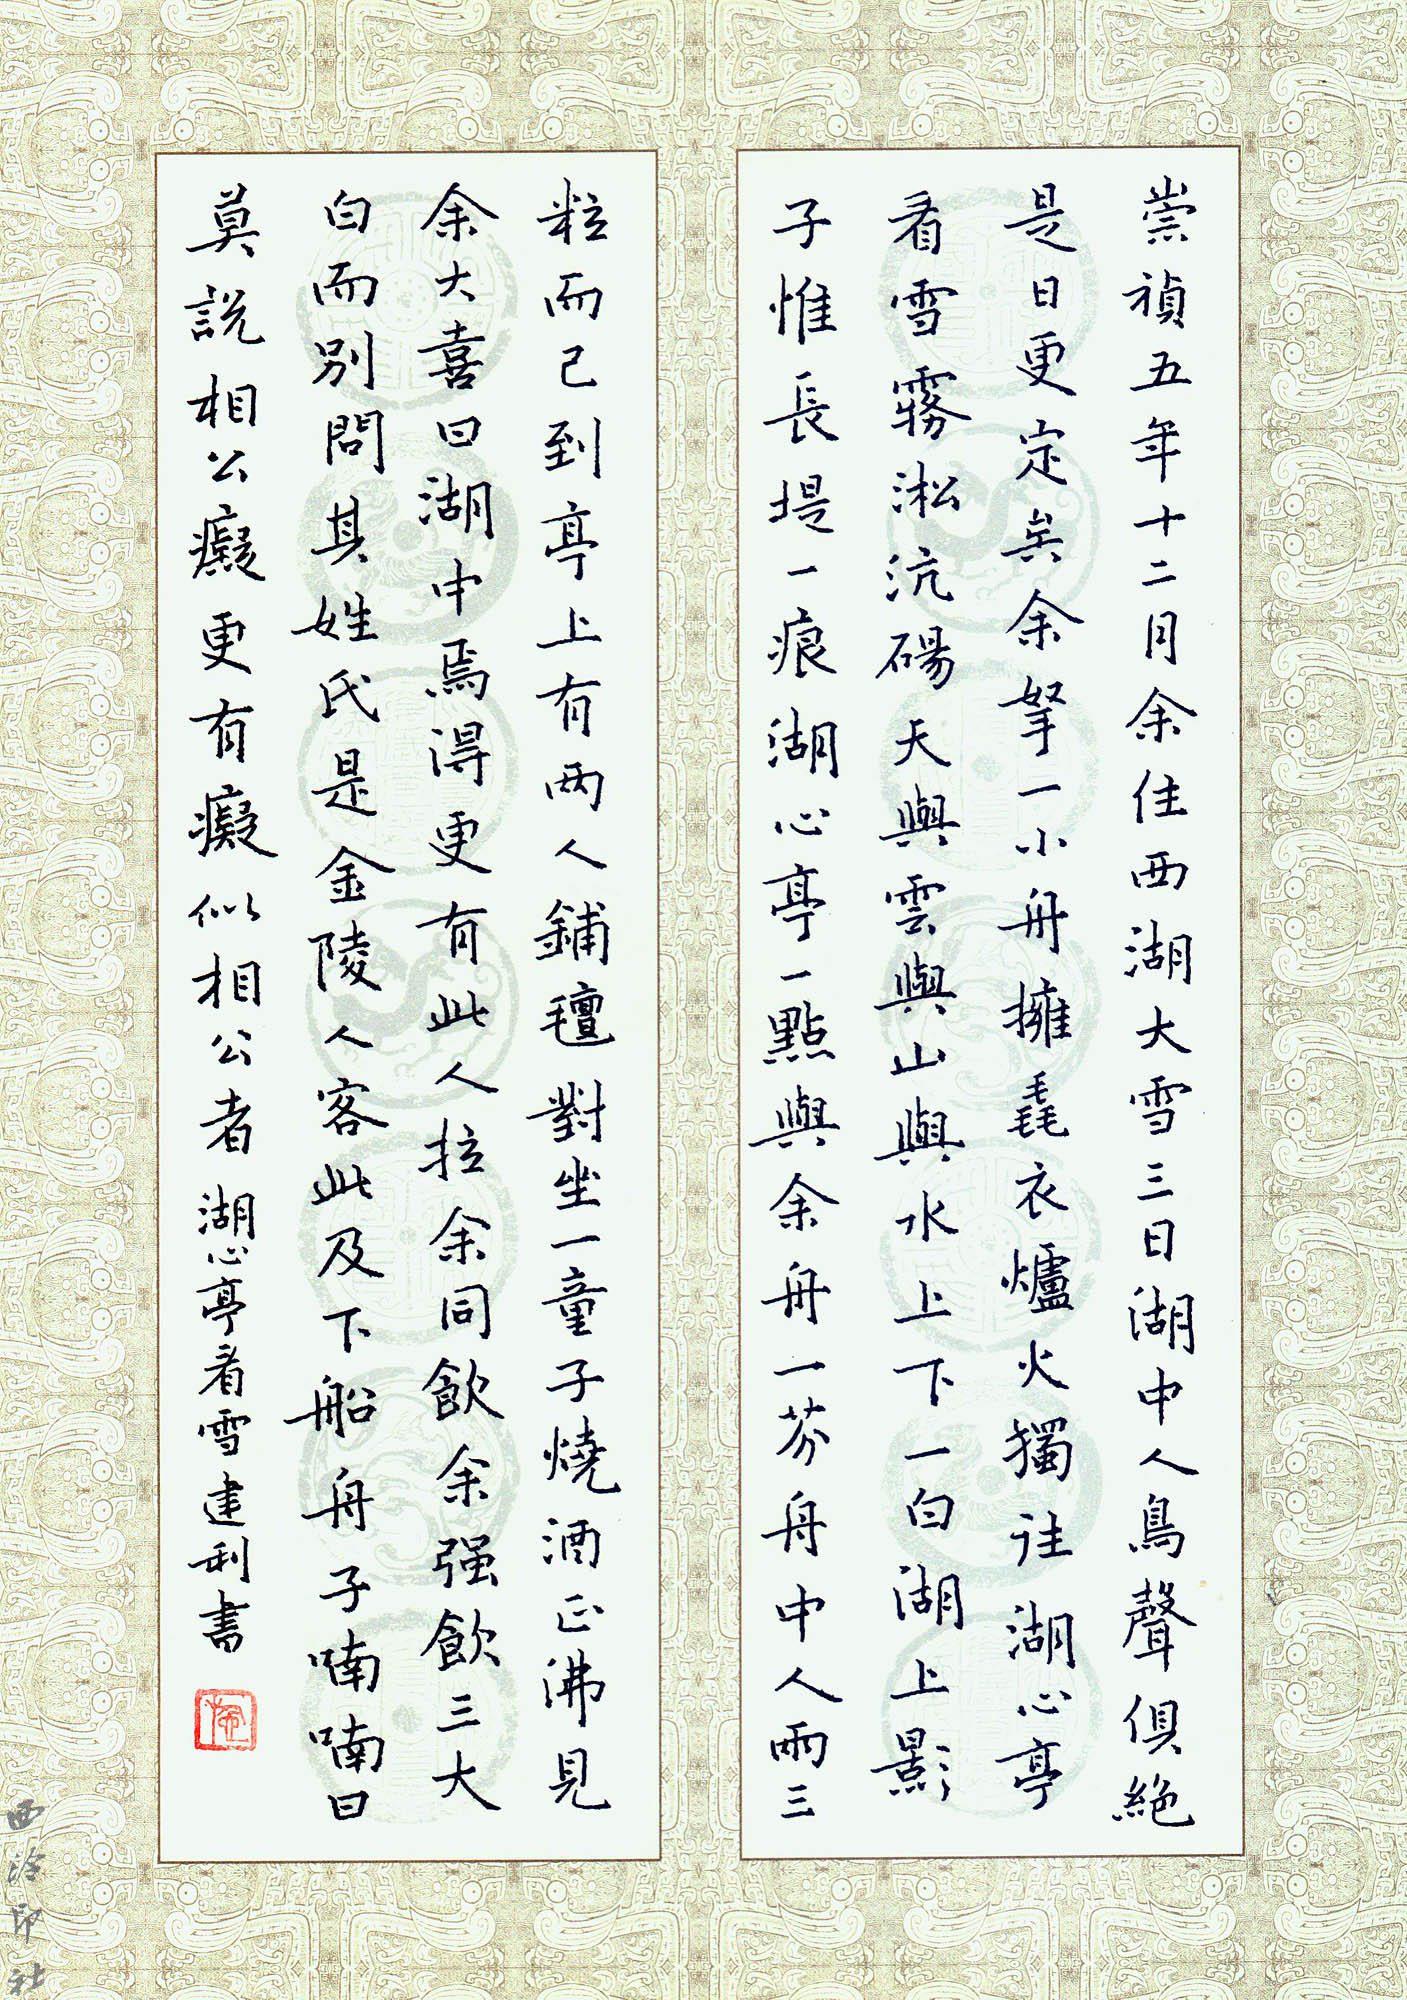 崇禎五年十二月余住西湖大雪三日湖中人鳥聲俱絶
是日更定矣余拏一小舟擁毳衣爐火獨往湖心亭
看雪霧淞沆碭天與雲與山與水上下一白湖上影
子惟長堤一痕湖心亭一點與余舟一芥舟中人兩三
粒而已到亭上有兩人鋪氊對坐一童子燒酒正沸見
余大喜曰湖中焉得更有此人拉余同飲余强飲三大
白而別問其姓氏是金陵人客此及下船舟子喃喃曰
莫說相公癡更有癡似相公者 湖心亭看雪建利書
西泠印社